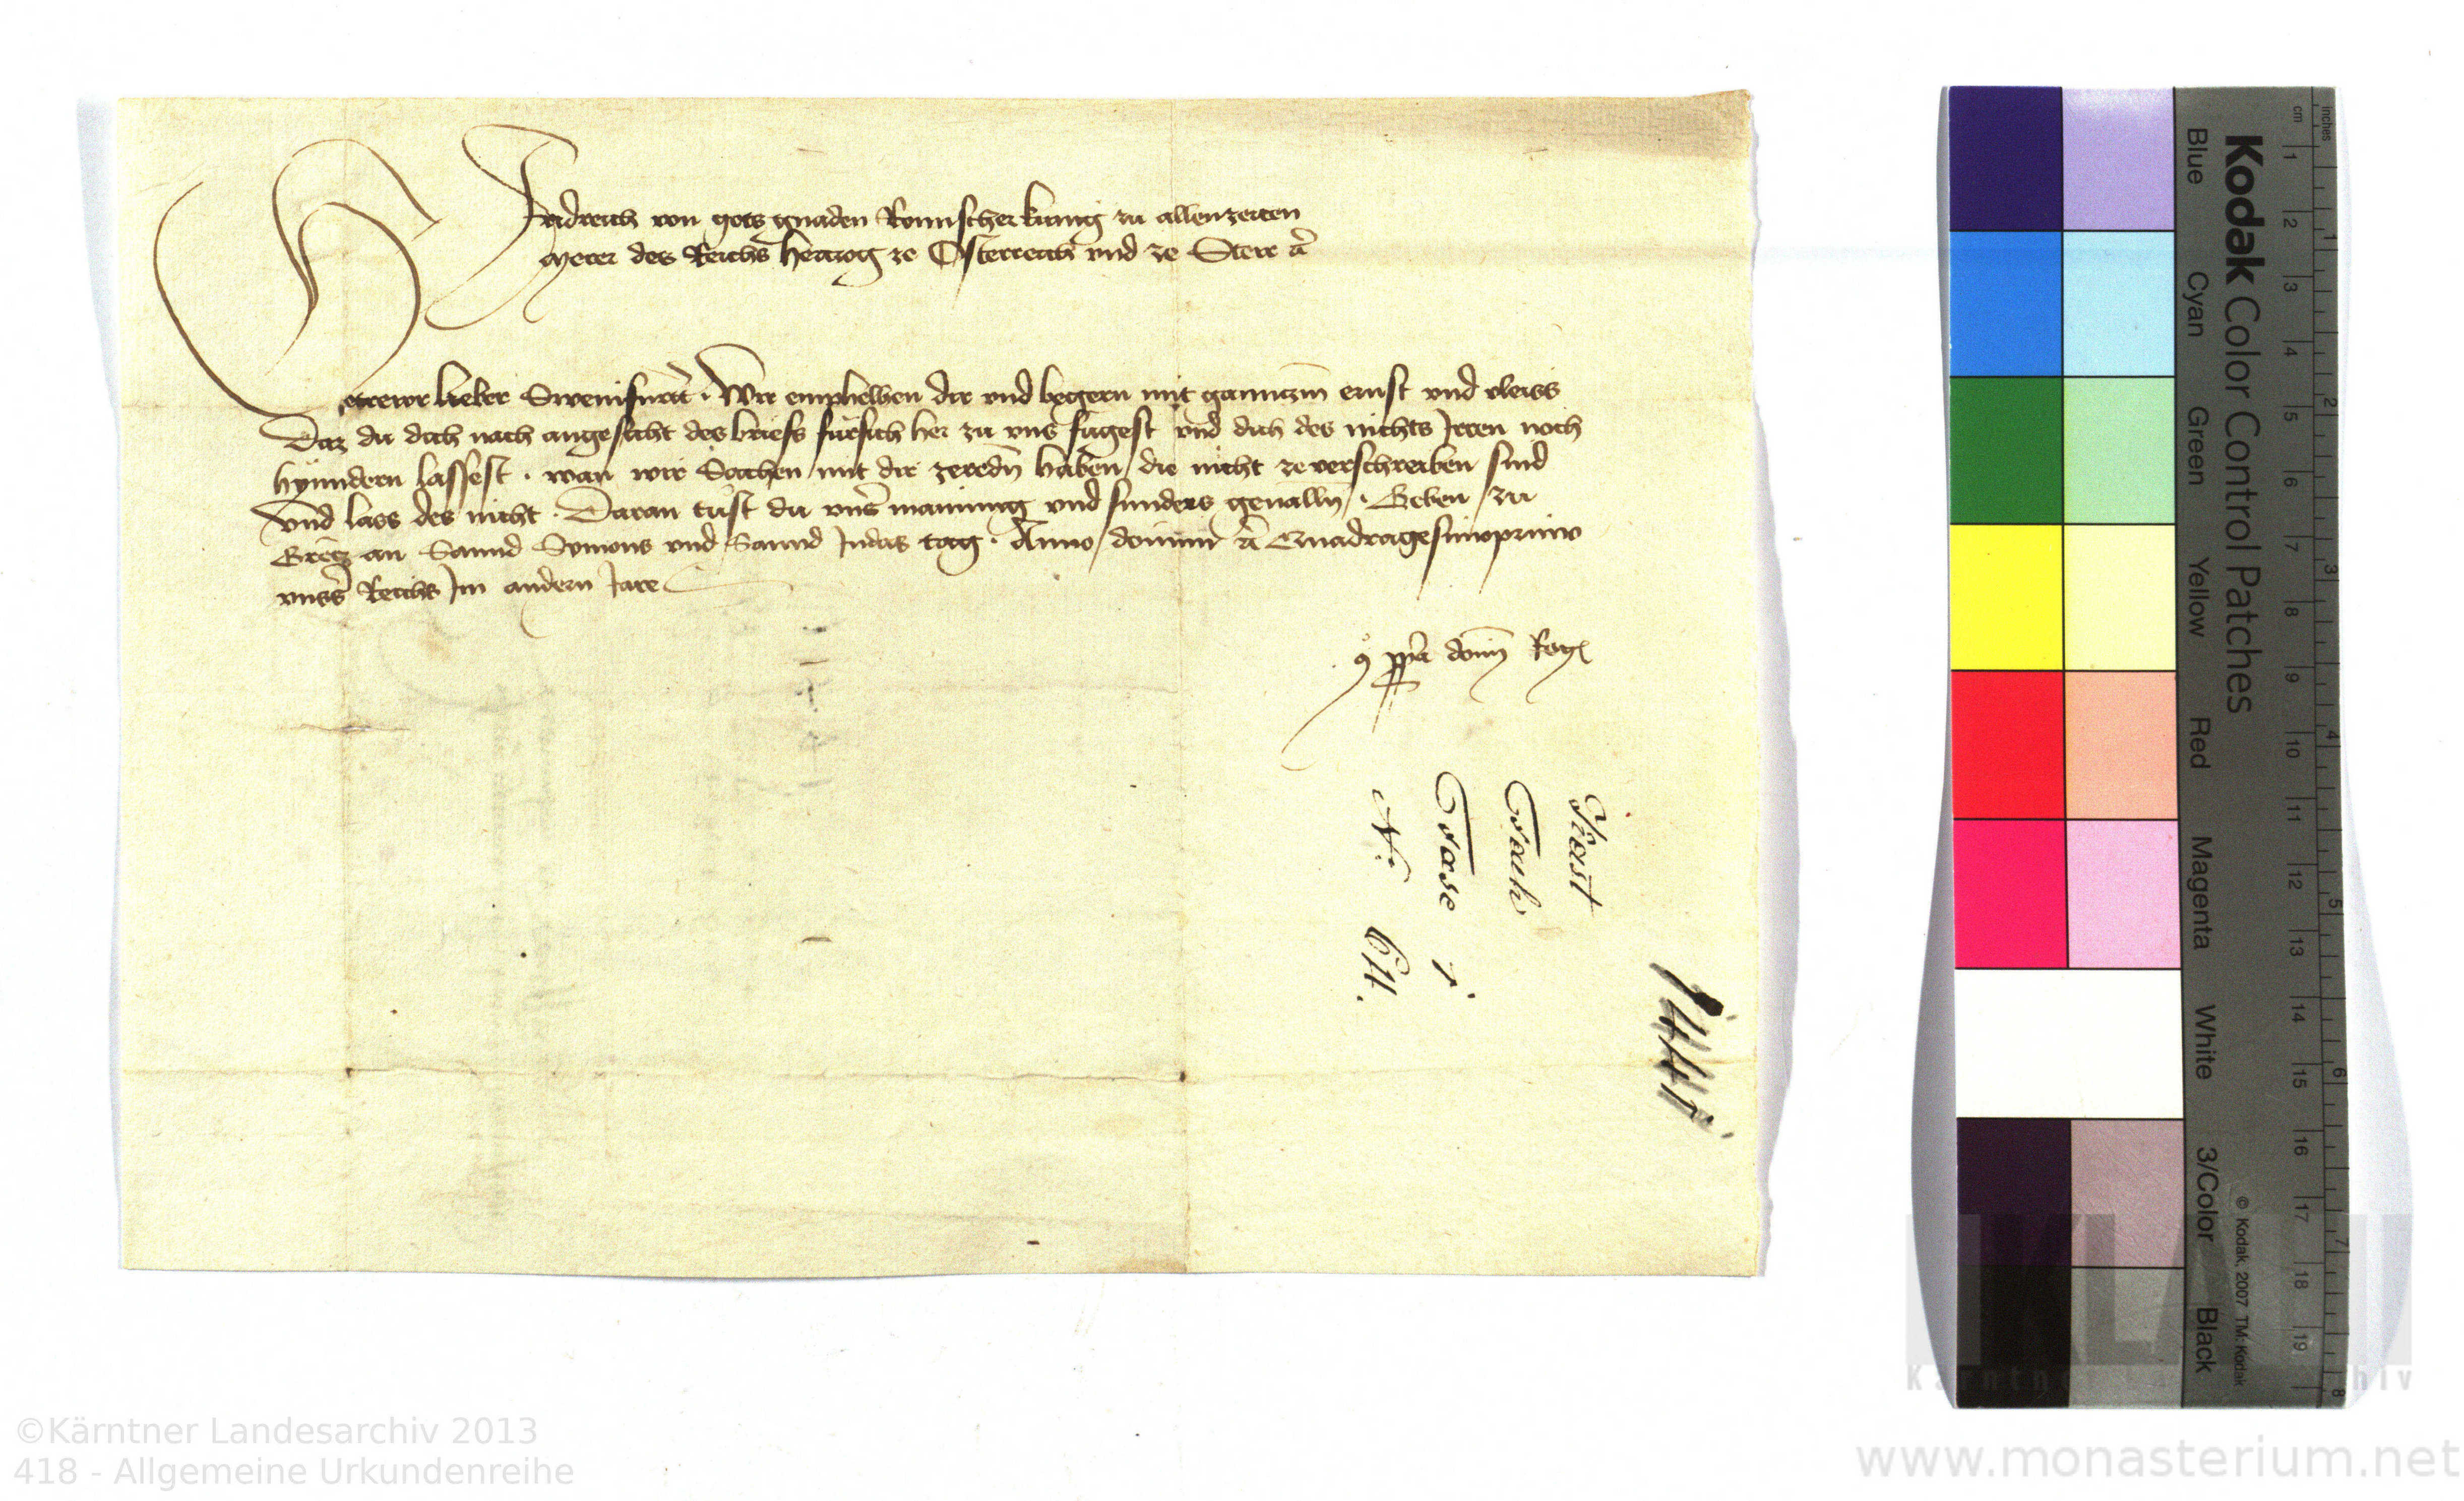 Fridreich von gots gnaden Romischer kunig zu allenczeiten
Merer des Reichs herczog ze Osterreich und ze Steir ꝛc̄
Getrewr lieber Sweinsnait. Wir emphelhen dir vnd begern mit ganntzm ernst vnd vleiss
Daz du dich nach angesicht des briefs fürsich her zu vns fügest vnd dich des nichts Irren noch
hynndern lassest. wan wir Sachen mit dir zeredn haben, die nicht ze verschreiben sind
Vnd lass des nicht. Daran tüst du vns̄ mainung vnd sunders geualln̄. Geben zu
Gretz an Sannd Symons vnd Sannd Judas tag. Anno domini ꝛc̄ Quadragesimoprimo
vnss̄ Reichs Im andern Jare
ppīa domī Reg
Kast
Fach
Fasc 1.
N: 64.
1441.
Kodak Color Control Patches
Blue Cyan Green Yellow Red Magenta White 3/Color Black
inches 1 2 3 4 5 6 7 8
cm 1 2 3 4 5 6 7 8 9 10 11 12 13 14 15 16 17 18 19
© Kodak, 2007 TM: Kodak
KLA
Kärntner Landesarchiv
©Kärntner Landesarchiv 2013
418 - Allgemeine Urkundenreihe
www.monasterium.net